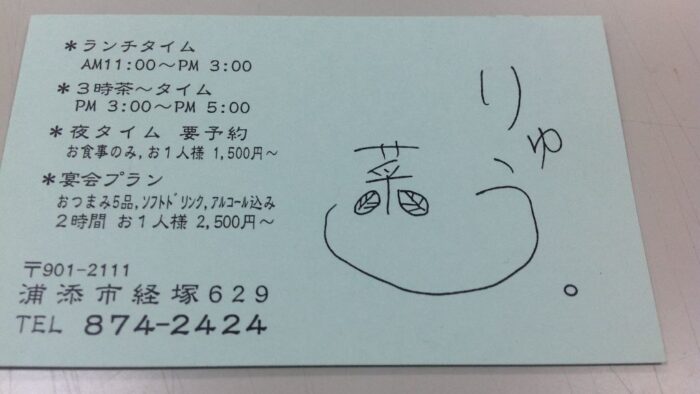 ＊ランチタイム
AM11:00～PM 3:00
＊3時茶～タイム
PM 3:00～PM 5:00
＊夜タイム 要予約
お食事のみ,お1人様 1,500円～
＊宴会プラン
おつまみ5品,ｿﾌﾄﾄﾞﾘﾝｸ,ｱﾙｺｰﾙ込み
2時間 お1人様 2,500円～
〒901-2111
浦添市経塚629
TEL 874-2424
菜
りゅう。